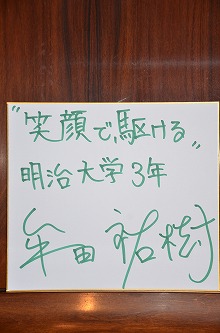 "笑顔で、駆ける"
明治大学3年
牟田祐樹